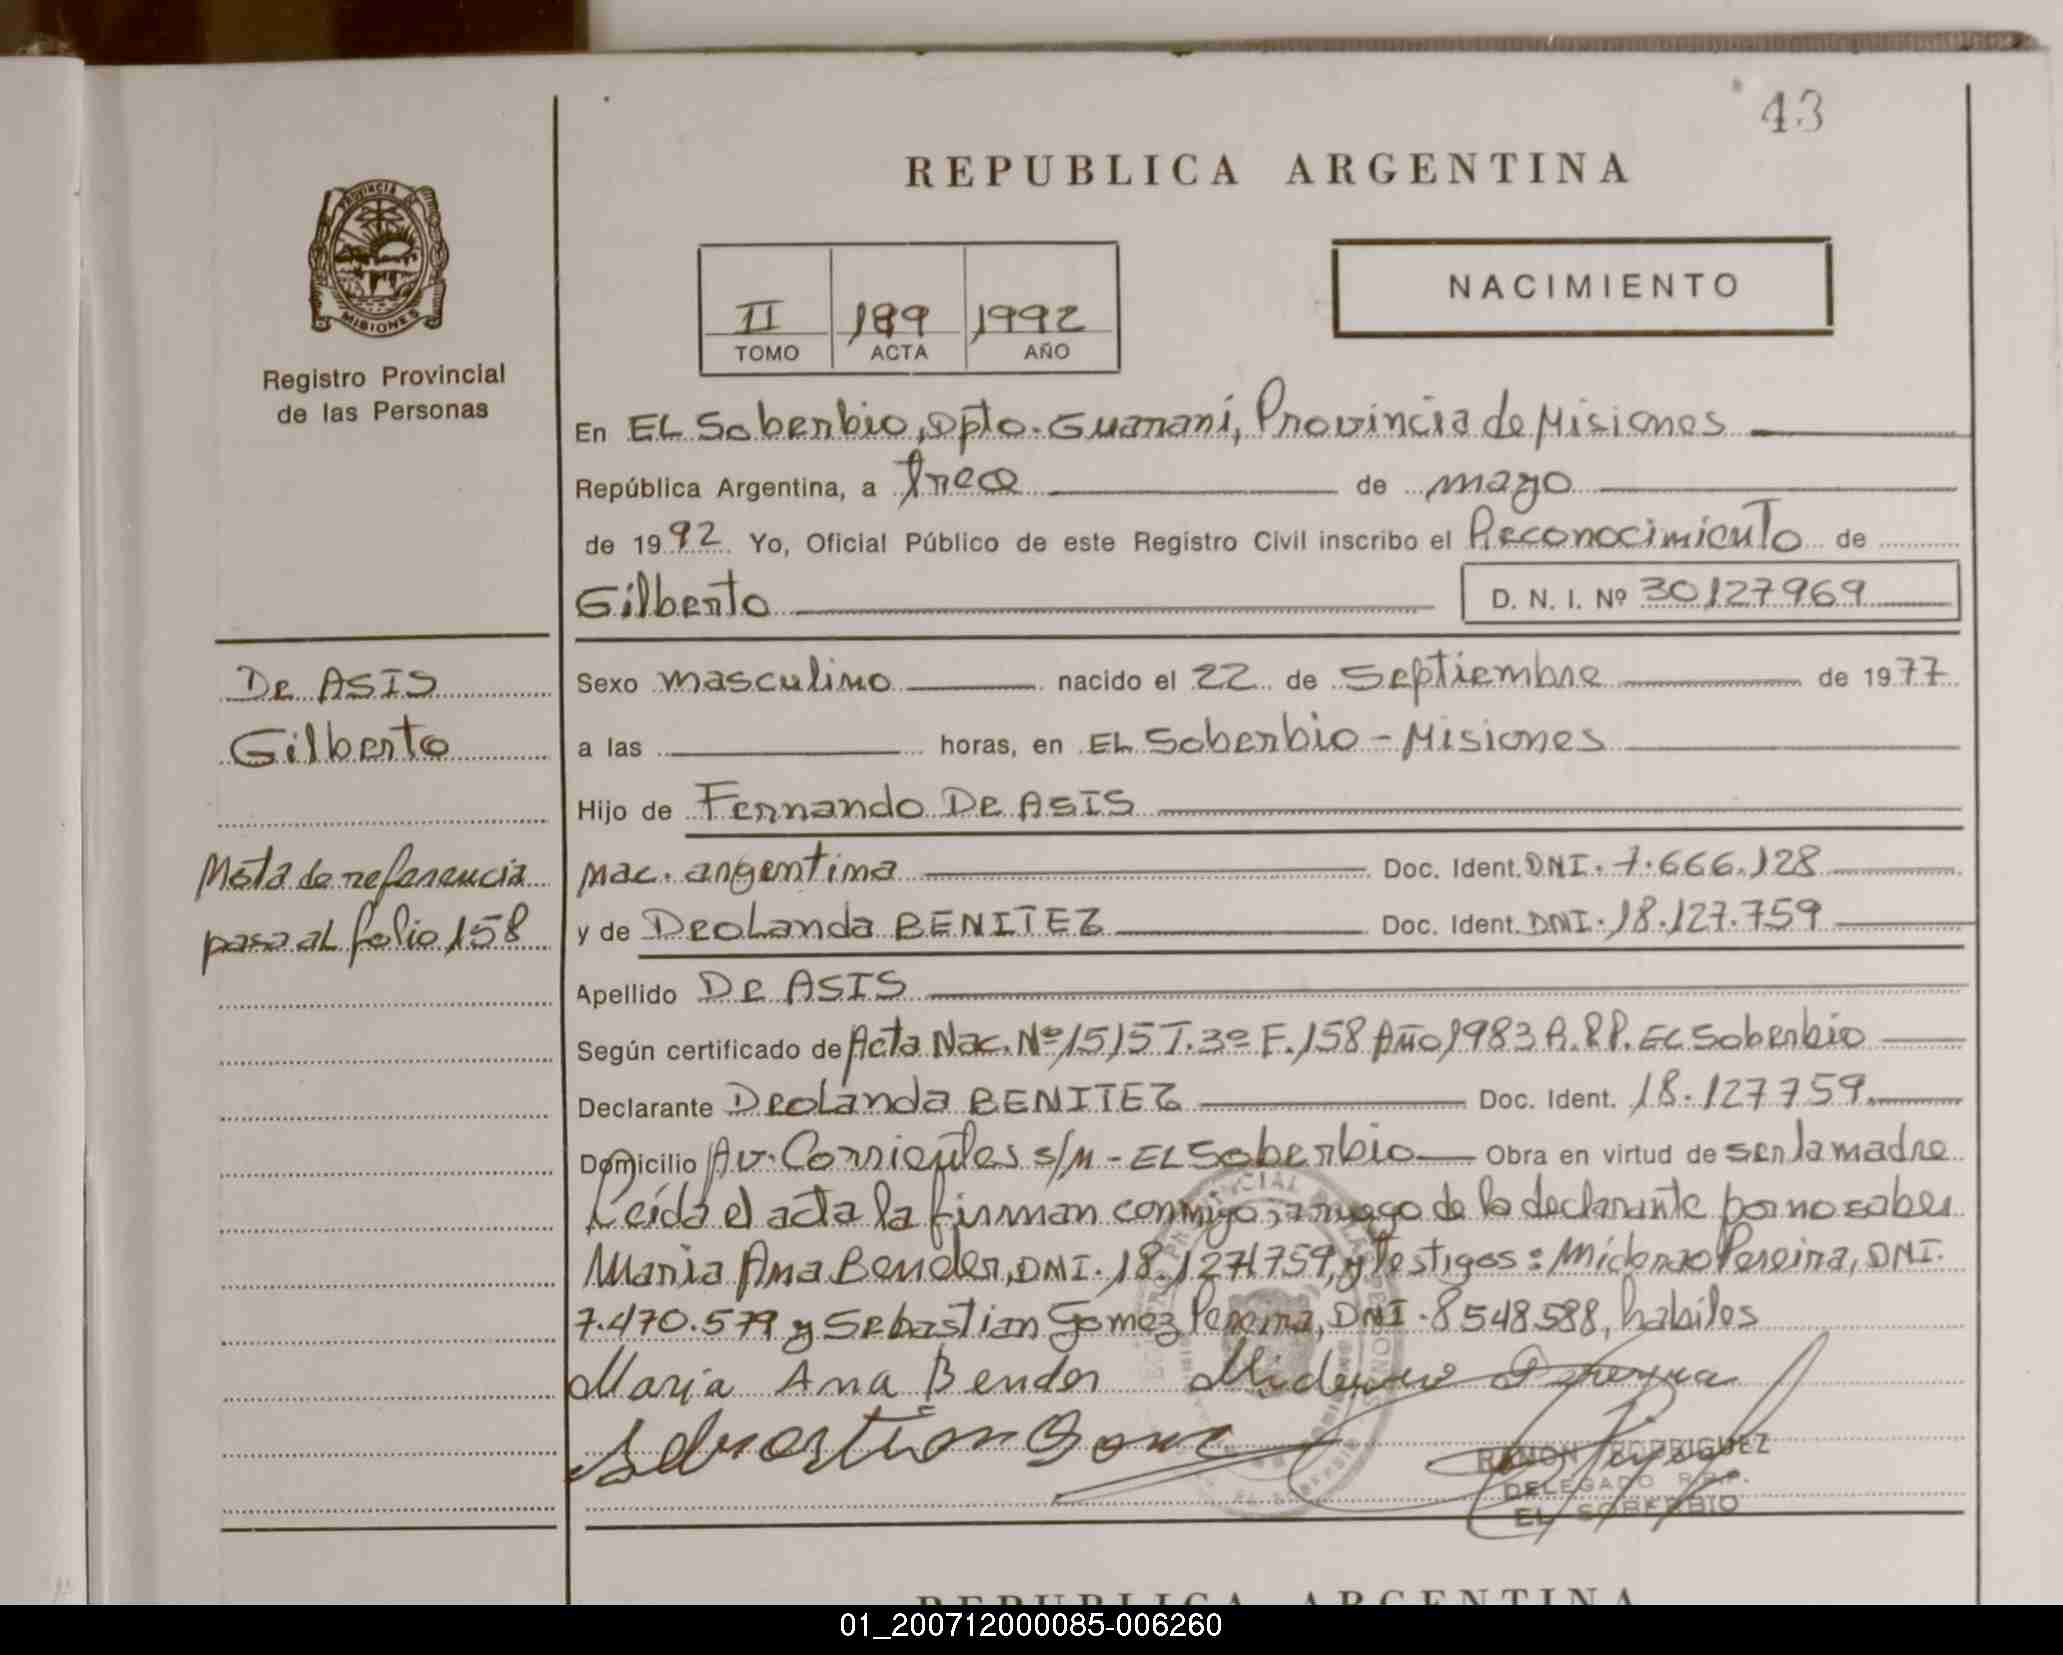 43
REPUBLICA ARGENTINA
PROVINCIA DE
MISIONES
Registro Provincial
de las Personas
II 189 1992
TOMO ACTA AÑO
NACIMIENTO
En EL Soberbio, Dpto. Guaraní, Provincia de Misiones
República Argentina, a trece de mayo
de 1992 Yo, Oficial Público de este Registro Civil inscribo el Reconocimiento de
Gilberto D. N. I. Nº 30127969
De ASIS
Gilberto
Nota de referencia
pasa al folio 158
Sexo masculino nacido el 22 de Septiembre de 1977
a las horas, en EL Soberbio - Misiones
Hijo de Fernando De ASIS
nac. argentina Doc. Ident. DNI. 7.666.128
y de DeoLanda BENITEZ Doc. Ident. DNI. 18.127.759
Apellido De ASIS
Según certificado de Acta Nac. Nº 1515 T. 3º F. 158 Año 1983 R.P.P. EL Soberbio
Declarante DeoLanda BENITEZ Doc. Ident. 18.127759
Domicilio Av. Corrientes s/n - EL Soberbio Obra en virtud de ser la madre
Leída el acta la firman conmigo, a ruego de la declarante por no saber
Maria Ana Bender, DNI. 18.127.759, y testigos: Pereira, DNI.
7.470.579 y Sebastian Gomez Pereira, DNI. 8548.588, habiles
Maria Ana Bender
RAMON RODRIGUEZ
DELEGADO R.P.P.
EL SOBERBIO
REPUBLICA ARGENTINA
01_200712000085-006260